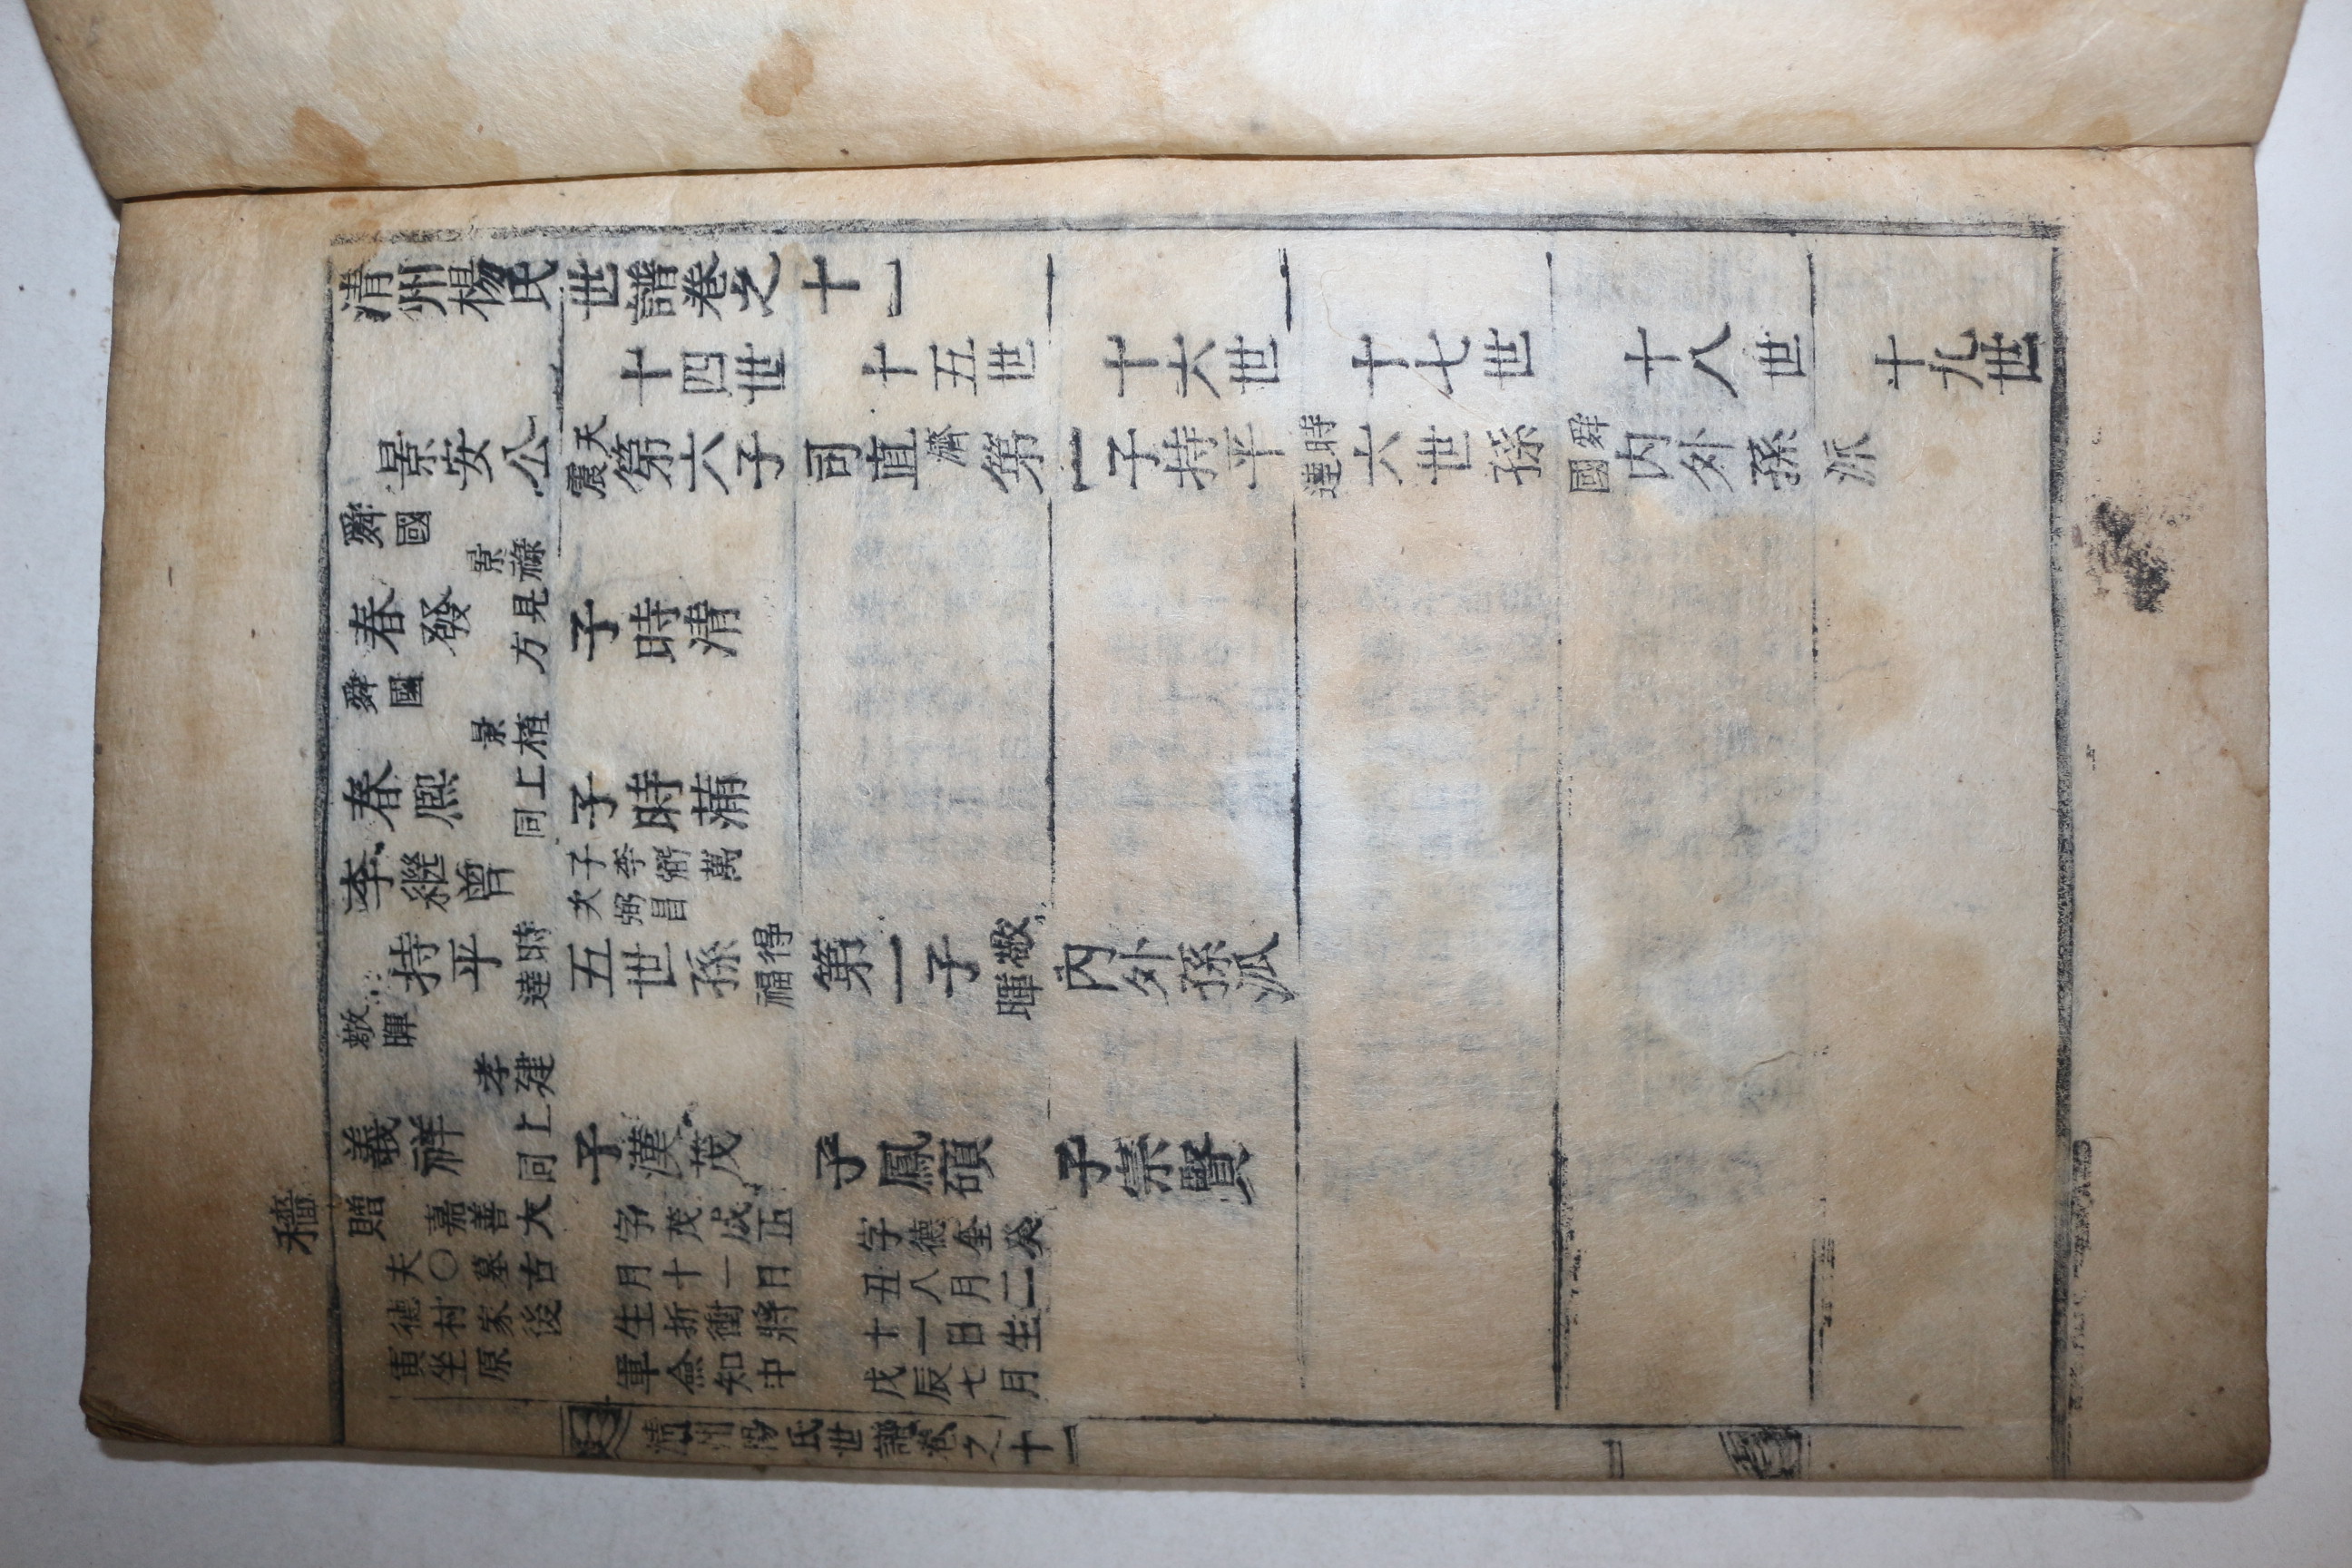 清州楊氏世譜卷之十一
十四世 十五世 十六世 十七世 十八世 十九世
景安公天震第六子司直濟第一子持平時達六世孫舜國內外孫派
舜國 春發 景祿見方 子時清
舜國 春熙 景植上同 子時蒲
李繼曾 子李弼萬
次弼昌
持平時達五世孫得福第一子敬暉內外孫派
敬暉 義祥 孝建上同 子漢茂 子鳳碩 子崇賢
穡 贈嘉善大 字茂盛正 字德奎癸
夫〇墓古 月十一日 丑八月二
德村家後 生折衝將 十一日生
寅坐原 軍僉知中 戊辰七月
清州楊氏世譜卷之十一